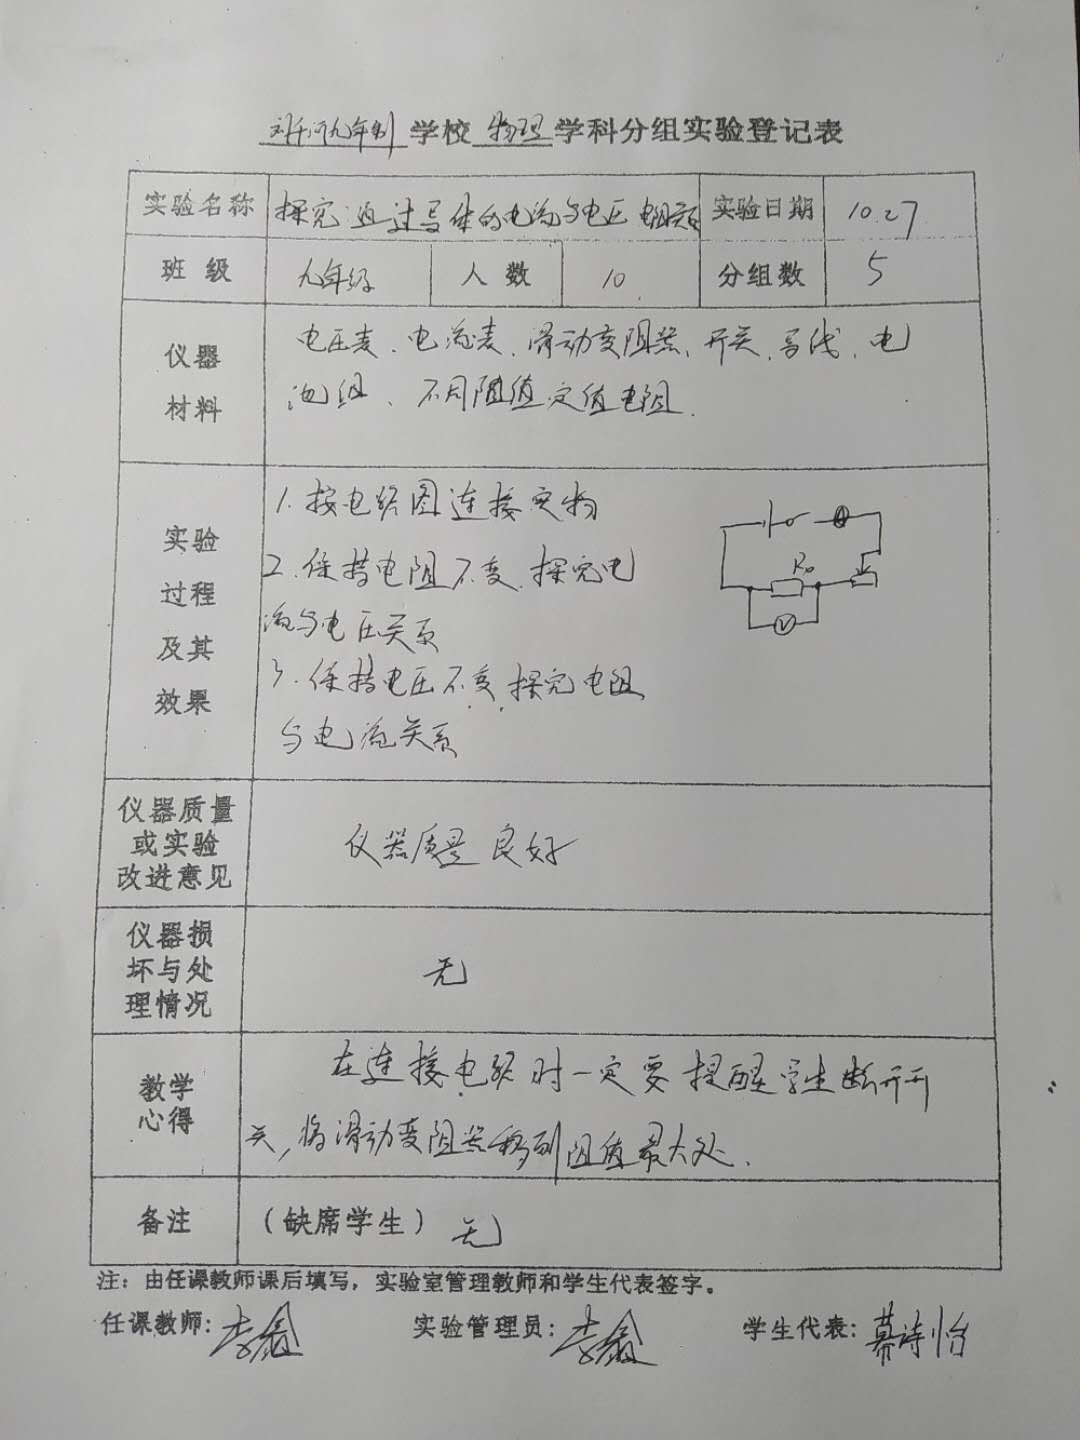 刘千河九年制学校 物理 学科分组实验登记表
实验名称 探究通过导体的电流与电压 电阻关系 实验日期 10.27
班 级 九年级 人 数 10. 分组数 5
仪器
材料
电压表、电流表、滑动变阻器、开关、导线、电
池组、不同阻值定值电阻.
实验
过程
及其
效果
1.按电路图连接实物
2.保持电阻不变.探究电
流与电压关系
3.保持电压不变,探究电阻
与电流关系
R₀
A
V
仪器质量
或实验
改进意见
仪器质量良好
仪器损
坏与处
理情况
无
教学
心得
在连接电路时一定要提醒学生断开开
关,将滑动变阻器移到阻值最大处.
备注 （缺席学生） 无
注：由任课教师课后填写，实验室管理教师和学生代表签字。
任课教师：李鑫 实验管理员：李鑫 学生代表：慕诗怡